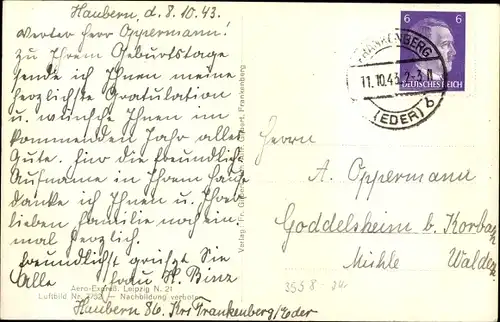 Haubern, d. 8.10.43.
Werter Herr Oppermann!
Zu Ihrem Geburtstage
sende ich Ihnen meine
herzlichste Gratulation
u. wünsche Ihnen im
kommenden Jahr alles
Gute. Für die freundliche
Aufnahme in Ihrem Hause
danke ich Ihnen u. Ihrer
lieben Familie noch ein-
mal herzlich.
Freundlichst grüßt Sie
Alle Frau H. Binz
Haubern 86. Krs Frankenberg/Eder
Aero-Expreß, Leipzig N. 21
Luftbild Nr. — Nachbildung verboten
Verlag: Fr. Frankenberg
6 6
DEUTSCHES REICH
FRANKENBERG
11.10.43
(EDER) b
Herrn
A. Oppermann
Goddelsheim b. Korbach
Mühle Waldeck